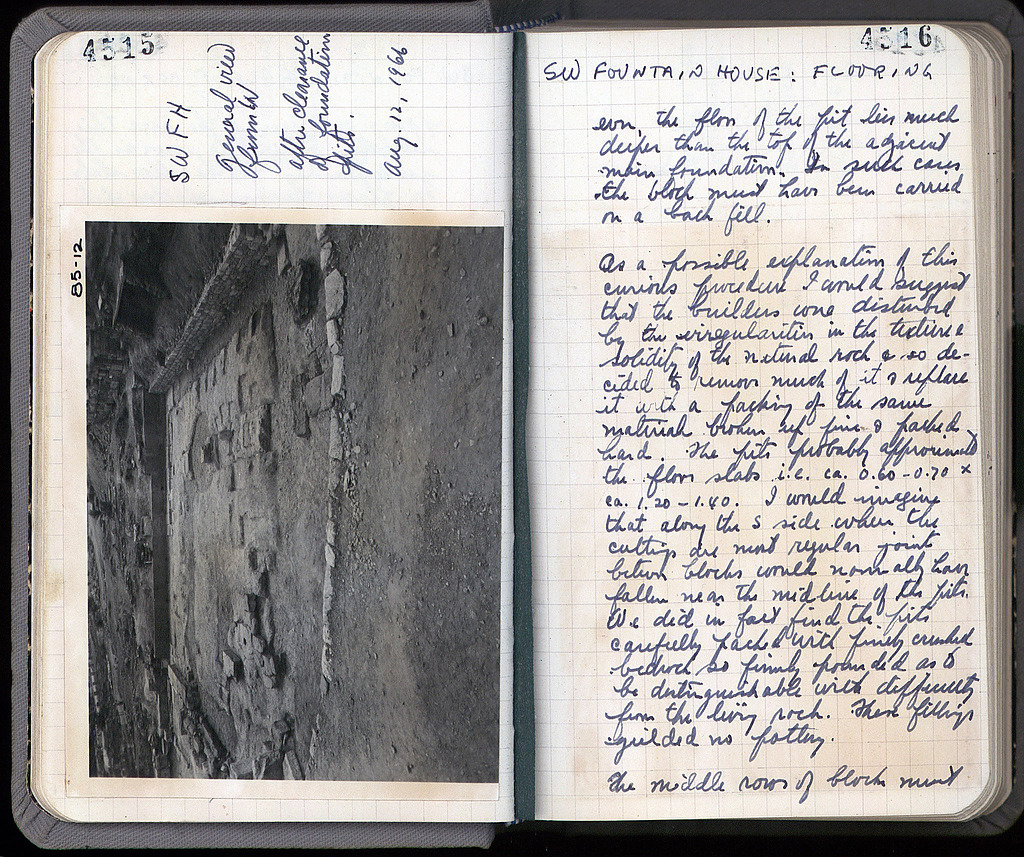 4515
SW FH
General view
from W
after clearance
of foundation
pits.
Aug. 12, 1966
85-12
4516
SW FOUNTAIN HOUSE: FLOORING
even, the floor of the pit lies much
deeper than the top of the adjacent
main foundation. In such cases
the block must have been carried
on a back fill.
As a possible explanation of this
curious procedure I would suggest
that the builders were disturbed
by the irregularities in the texture &
solidity of the natural rock & so de-
cided to remove much of it & replace
it with a packing of the same
material broken up fine & packed
hard. The pits probably approximate
the floor slabs i.e. ca. 0.60-0.70 x
ca. 1.20-1.40. I would imagine
that along the S side where the
cuttings are most regular joints
between blocks would normally have
fallen near the midline of the pits.
We did in fact find the pits
carefully packed with finely crushed
bedrock so firmly pounded as to
be distinguishable with difficulty
from the living rock. These fillings
yielded no pottery.
The middle rows of blocks must